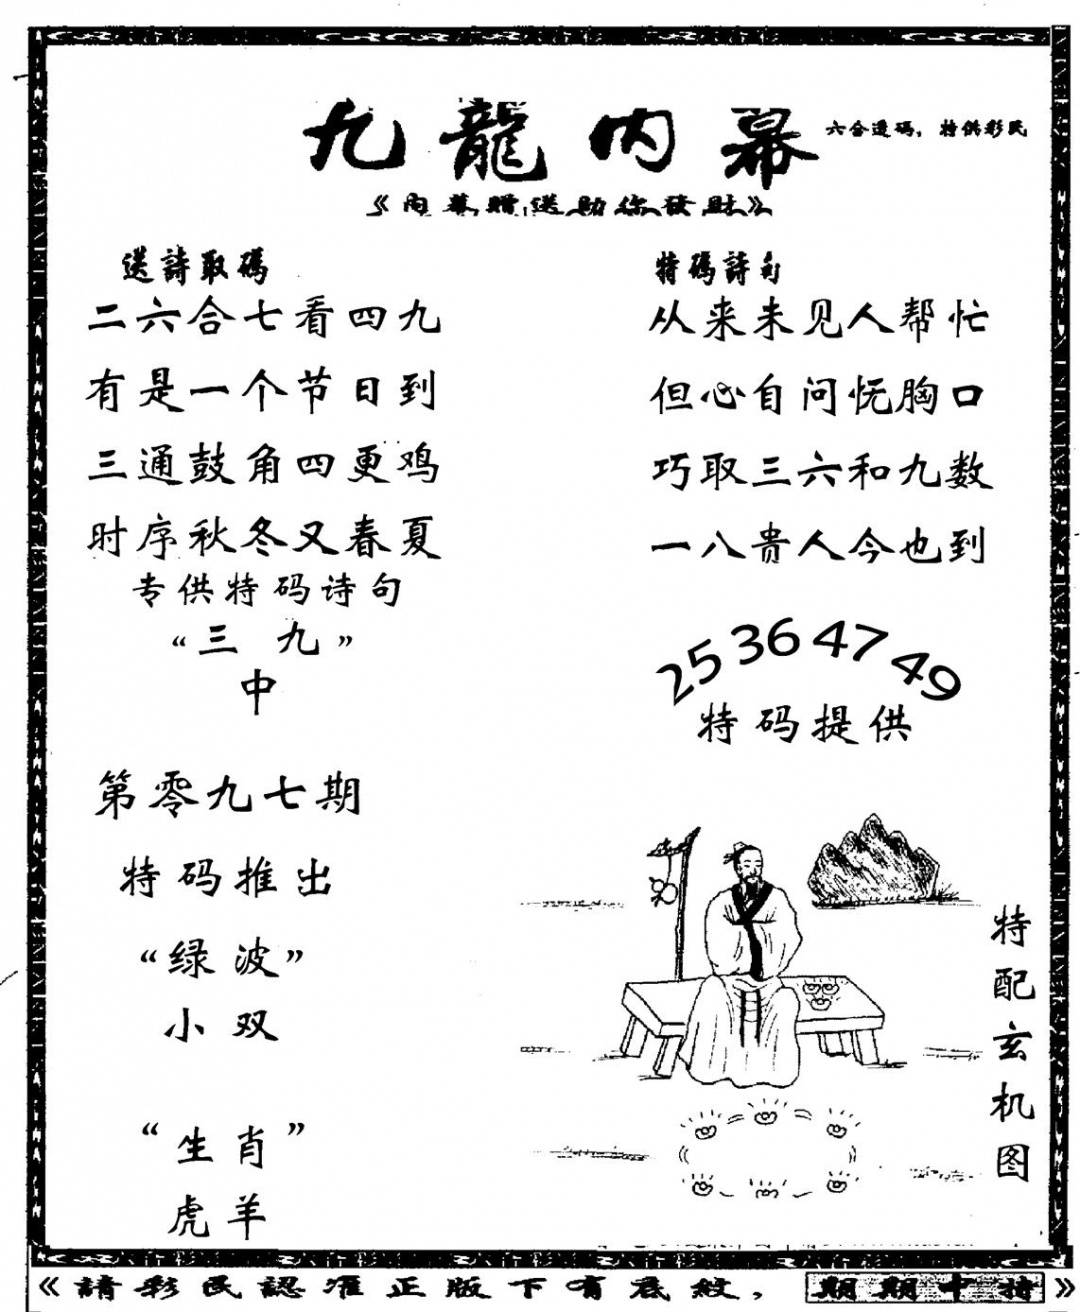 九龍内幕
六合透码，特供彩民
《内幕赠送助你發财》
送詩取碼
二六合七看四九
有是一个节日到
三通鼓角四更鸡
时序秋冬又春夏
专供特码诗句
“三 九”
中
第零九七期
特码推出
“绿波”
小双
“生肖”
虎羊
特碼詩句
从来未见人帮忙
但心自问怃胸口
巧取三六和九数
一八贵人今也到
25 36 47 49
特码提供
特配玄机图
《請彩民認准正版下有底紋，期期中特》